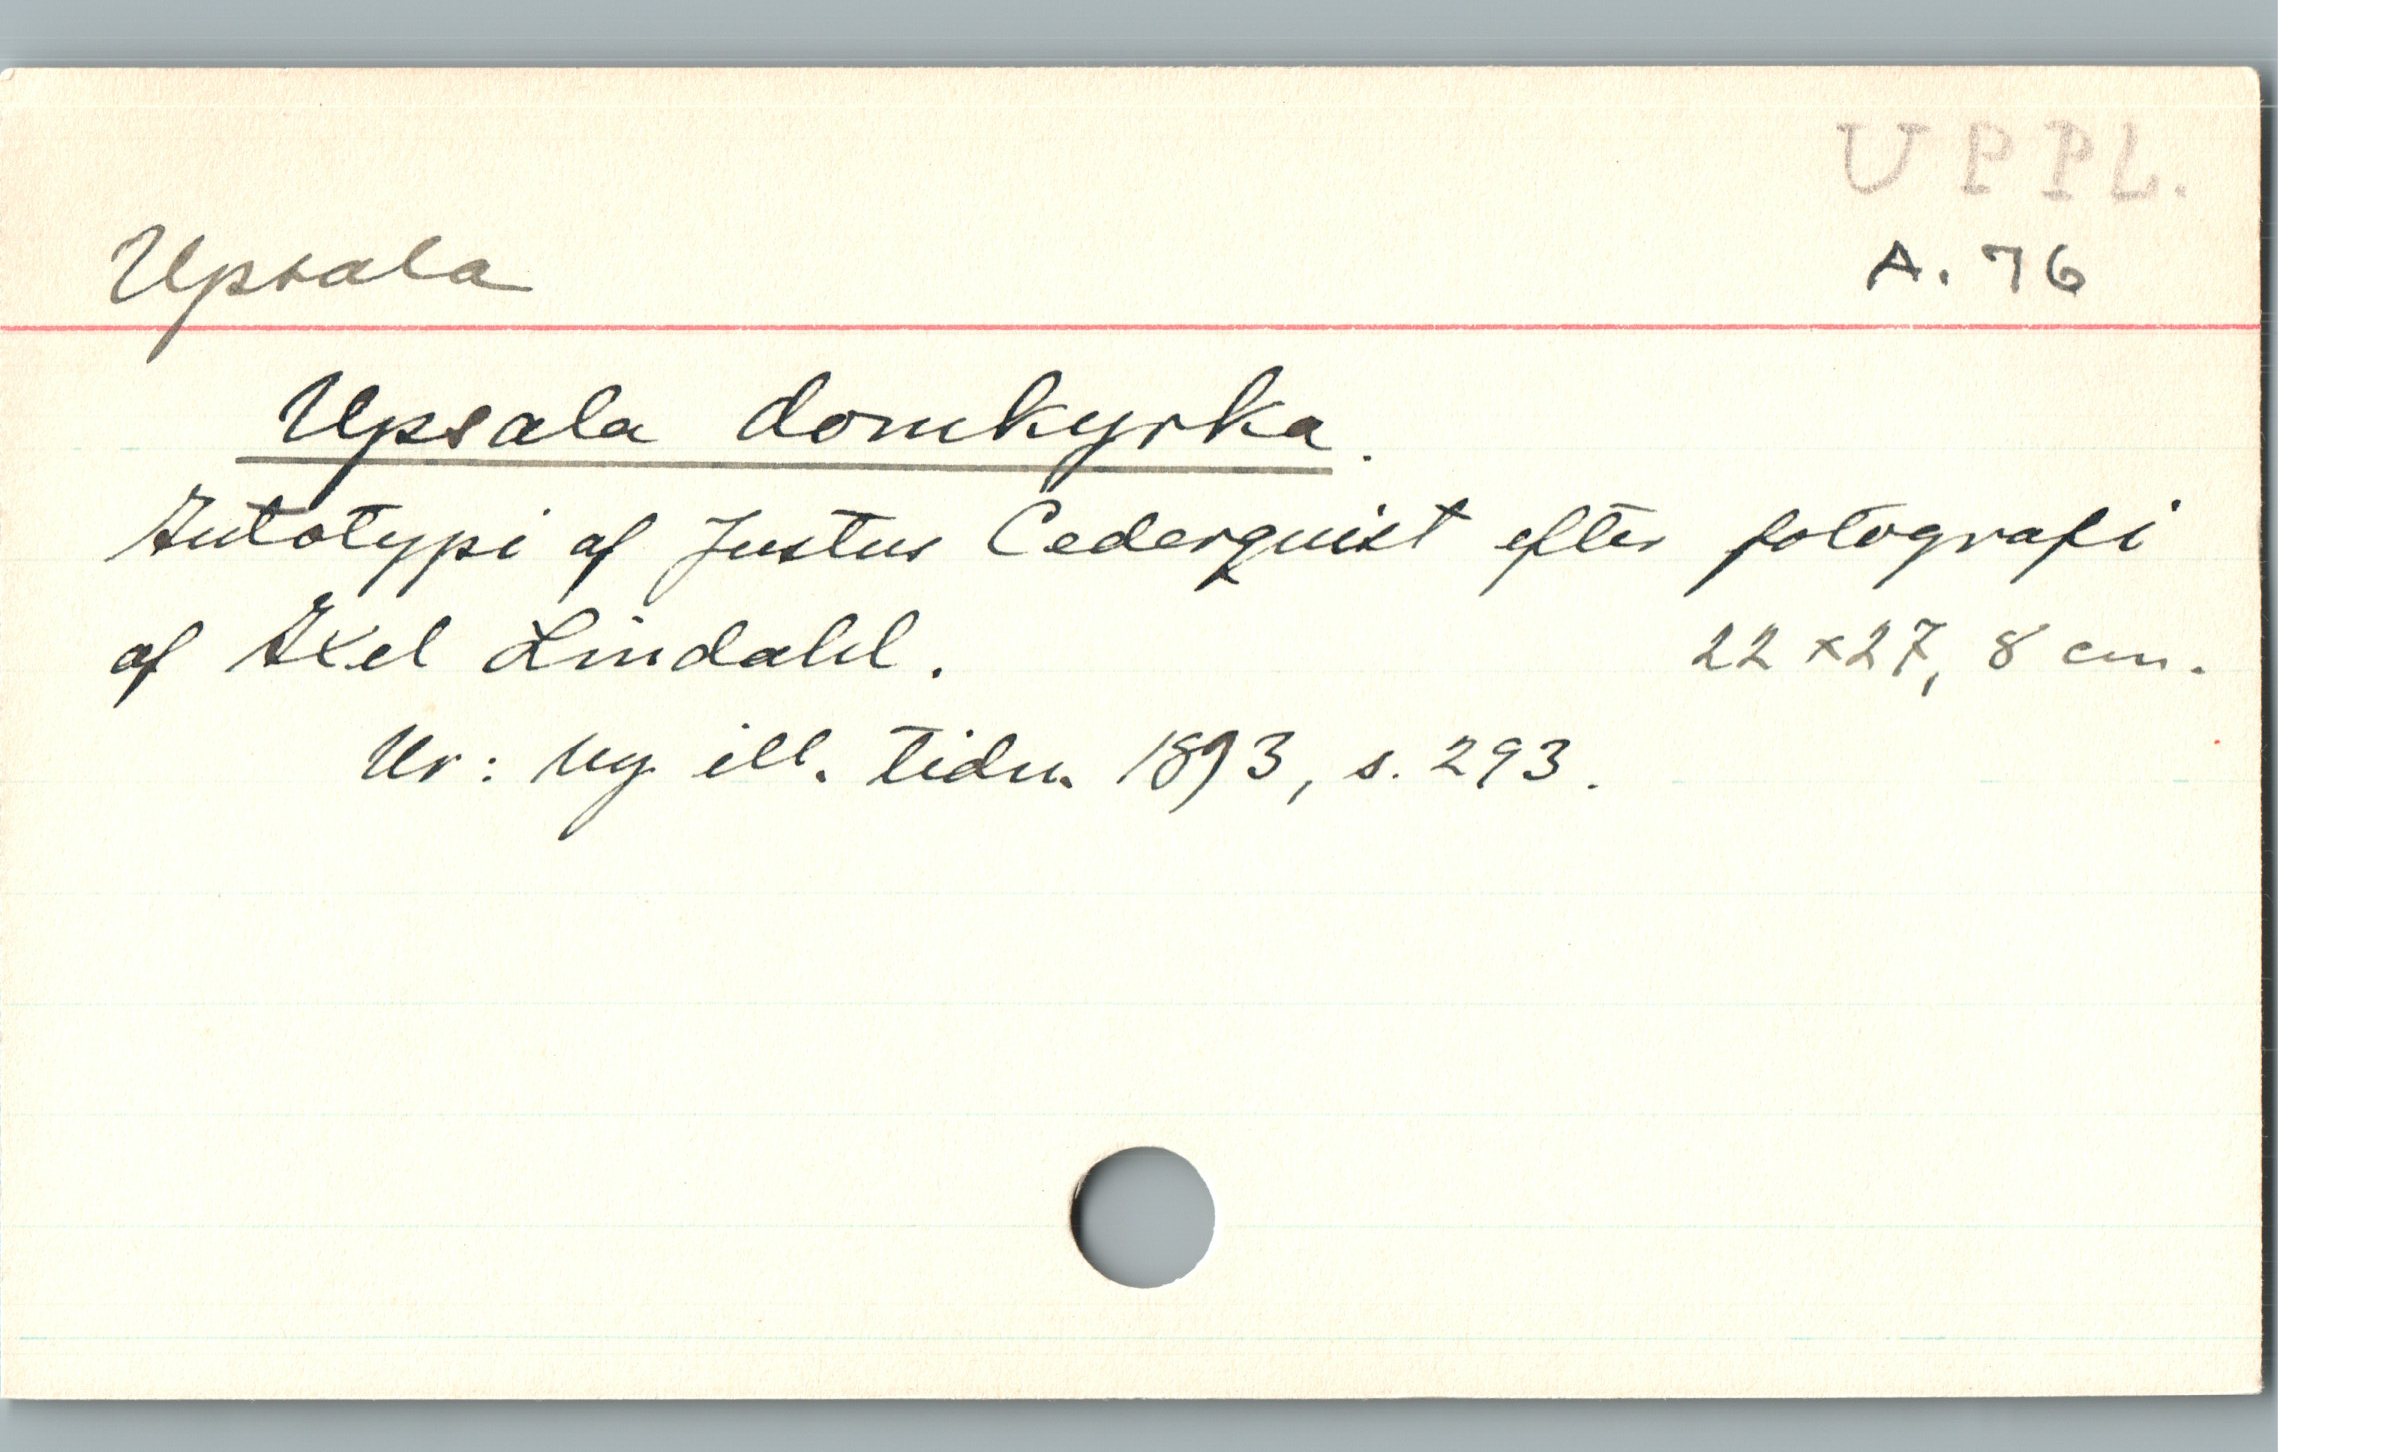 UPPL.
Upsala A. 76
Upsala domkyrka.
Autotypi af Justus Cederquist efter fotografi
af Axel Lindahl. 22 x 27,8 cm.
Ur: Ny ill. tidn. 1893, s. 293.